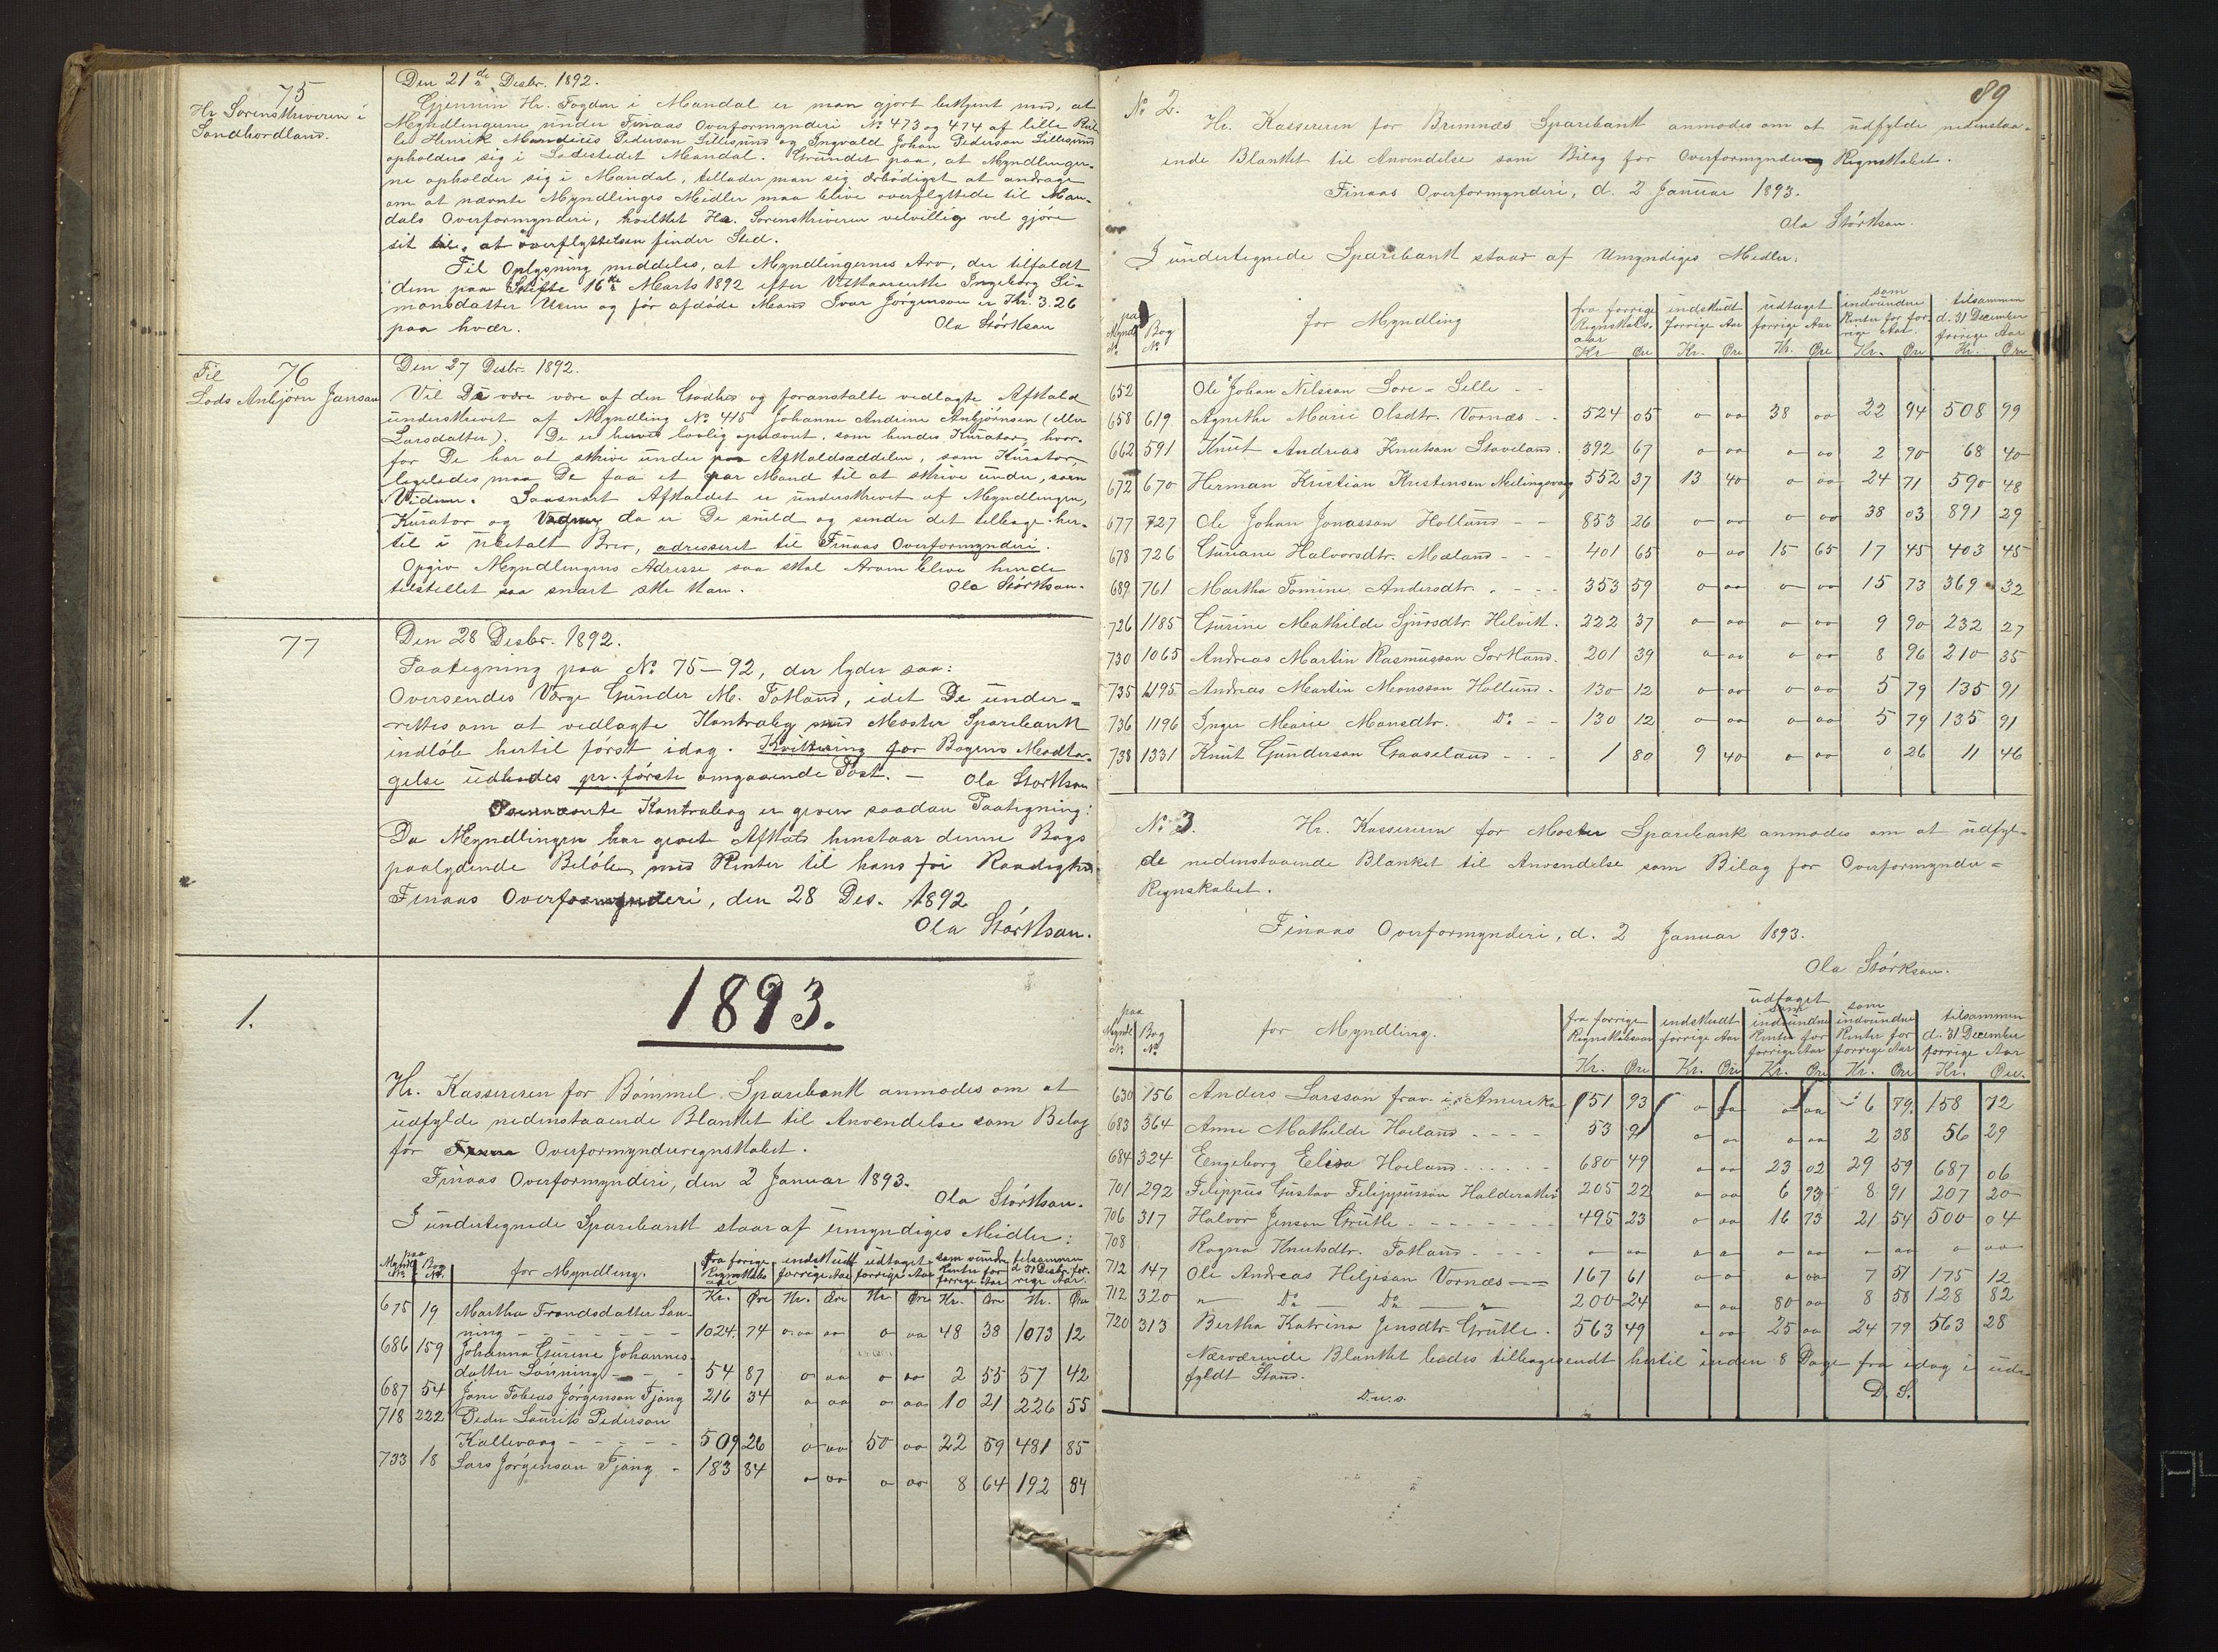 75
Hr Sorenskriveren i
Søndhordland.
Den 21de Desbr. 1892.
Gjennem Hr. Fogden i Mandal er man gjort bekjent med, at
Myndlingerne under Finaas Overformynderi No 473 og 474 af lille
Henrik Pederson Lillesund og Ingvald Johan Pederson Lillesund
opholder sig i Ladestedet Mandal. Grundet paa, at Myndlinger-
ne opholder sig i Mandal, tillader man sig ærbödigst at andrage
om at nævnte Myndlinges Midler maa blive overflyttede til Man-
dals Overformynderi, hvilket Hr. Sorenskriveren velvillig vil gjöre
sit til, at overflyttelsen finder Sted.
Til Oplysning meddeles, at Myndlingernes Arv, der tilfaldt
dem paa Skifte 16de Marts 1892 efter Ingeborg Si-
monsdatter og för afdöde Mand Ivar Jörgenson er Kr. 3.26
paa hver. Ola Störkson
Til 76
Lods Anbjörn Janson
Den 27 Desbr. 1892.
Vil De være af den Godhed og foranstalte vedlagte Afkald
underskrevet af Myndling No 415 Johanne Andrine Anbjörnsen (eller
Larsdatter). De er herved lovlig opnævnt, som hendes Kurator, hvor-
for De har at skrive under paa Afkaldsæddelen, som Kurator,
ligeledes maa De faa et par Mand til at skrive under, som
Vidner. Saasnart Afkaldet er underskrevet af Myndlingen,
Kurator og Vidner, da er De snild og sender det tilbage her-
til i ubetalt Brev, adresseret til Finaas Overformynderi.
Opgiv Myndlingens Adresse saa skal Arven blive hende
tilstillet saa snart ske kan. Ola Störkson.
77
Den 28 Desbr. 1892.
Paategning paa No 75–92, der lyder saa:
Oversendes Værge Gunder M. Totland, idet De under-
rettes om at vedlagte Kontrabog med Moster Sparebank
indlöb hertil först idag. Kvittering for Bogens Modta-
gelse udbedes pr. förste omgaaende Post. — Ola Störkson
Kontrabog er given saadan Paategning:
Da Myndlingen har givet Afkald henstaar denne Bogs
paalydende Belöb med Renter til hans fri Raadighed.
Finaas Overformynderi, den 28 Des. 1892
Ola Störkson.
1.
1893.
Hr. Kassereren for Bömmel Sparebank anmodes om at
udfylde nedenstaaende Blanket til Anvendelse som Bilag
for Overformynderregnskabet.
Finaas Overformynderi, den 2 Januar 1893.
Ola Störkson.
I undertegnede Sparebank staar af umyndiges Midler:
paa Myndl. No | Bog No. | for Myndling. | fra forrige Regnskabsaar | indskudt forrige Aar | udtaget forrige Aar | som vundne Renter for forrige Aar | tilsammen d. 31 Desbr. forrige Aar.
Kr. Øre Kr. Øre Kr. Øre Kr. Øre Kr. Øre
675 19 Martha Trondsdatter Løn-
ning 1024 74 0 00 0 00 48 38 1073 12
686 159 Johanna Gurine Johannes-
datter Lönning 54 87 0 00 0 00 2 55 57 42
687 54 Jens Tobias Jörgenson Fjöng 216 34 0 00 0 00 10 21 226 55
718 222 Peder Laurits Pederson
Kallevaag 509 26 0 00 50 00 22 59 481 85
733 18 Lars Jörgenson Fjöng 183 84 0 00 0 00 8 64 192 84
89
No 2.
Hr. Kassereren for Bremnæs Sparebank anmodes om at udfylde nedenstaa-
ende Blanket til Anvendelse som Bilag for Overformynder Regnskabet.
Finaas Overformynderi, d. 2 Januar 1893.
Ola Störkson.
I undertegnede Sparebank staar af Umyndiges Midler:
paa Myndl No | Bog No | for Myndling | fra forrige Regnskabsaar | indskudt forrige Aar | udtaget forrige Aar | som indvundne Renter for forrige Aar. | tilsammen d. 31 December forrige Aar
Kr Øre Kr. Øre Kr. Øre Kr. Øre Kr. Øre
652 Ole Johan Nilsson Sore-Selle - -
658 619 Agnethe Marie Olsdtr. Vornæs - 524 05 0 00 38 00 22 94 508 99
662 591 Knut Andreas Knutson Staveland. 392 67 0 00 0 00 2 90 68 40
672 670 Herman Kristian Kristensen Meilingsvaag 552 37 13 40 0 00 24 71 590 48
677 727 Ole Johan Jonasson Hollund - - 853 26 0 00 0 00 38 03 891 29
678 726 Guriane Halvorsdtr. Mæland - - - 401 65 0 00 15 65 17 45 403 45
689 761 Martha Tomine Andersdtr. - - - 353 59 0 00 0 00 15 73 369 32
726 1185 Gurine Mathilde Sjursdtr. Helvik. 222 37 0 00 0 00 9 90 232 27
730 1065 Andreas Martin Rasmusson Sortland. 201 39 0 00 0 00 8 96 210 35
735 1195 Andreas Martin Monsson Hollund - 130 12 0 00 0 00 5 79 135 91
736 1196 Inger Marie Monsdtr. Do - - 130 12 0 00 0 00 5 79 135 91
738 1331 Knut Gunderson Gaaseland - - - 1 80 9 40 0 00 0 26 11 46
No 3. Hr. Kassereren for Moster Sparebank anmodes om at udfyl-
de nedenstaaende Blanket til Anvendelse som Bilag for Overformynder-
Regnskabet.
Finaas Overformynderi, d. 2 Januar 1893.
Ola Störkson.
paa Myndl No. | Bog No. | for Myndling. | fra forrige Regnskabsaar | indskudt forrige Aar | udtaget som indvundne Renter for forrige Aar | som indvundne Renter for forrige Aar | tilsammen d. 31 December forrige Aar
Kr. Øre Kr. Øre Kr. Øre Kr. Øre Kr. Øre.
630 156 Anders Larsson frav. i Amerika 151 93 0 00 0 00 6 79 158 72
683 364 Anne Mathilde Høiland - - - - 53 91 0 00 0 00 2 38 56 29
684 324 Engeborg Elisa Høiland . . . . . 680 49 0 00 23 02 29 59 687 06
701 292 Filippus Gustav Filippusson Halderaker 205 22 0 00 6 93 8 91 207 20
706 317 Halvor Jenson Grutle - - - - - - 495 23 0 00 16 73 21 54 500 04
708 Ragna Knutsdtr. Totland - - - - 0 00 0 00 0 00 0 00 0 00
712 147 Ole Andreas Heljeson Vornæs - - 167 61 0 0 0 00 7 51 175 12
712 320 " Do Do " 200 24 0 00 80 00 8 58 128 82
720 313 Bertha Katrina Jensdtr. Grutle. 563 49 0 00 25 00 24 79 563 28
Nærværende Blanket bedes tilbagesendt hertil inden 8 Dage fra idag i ud-
fyldt Stand.
D.u.s. D. S.